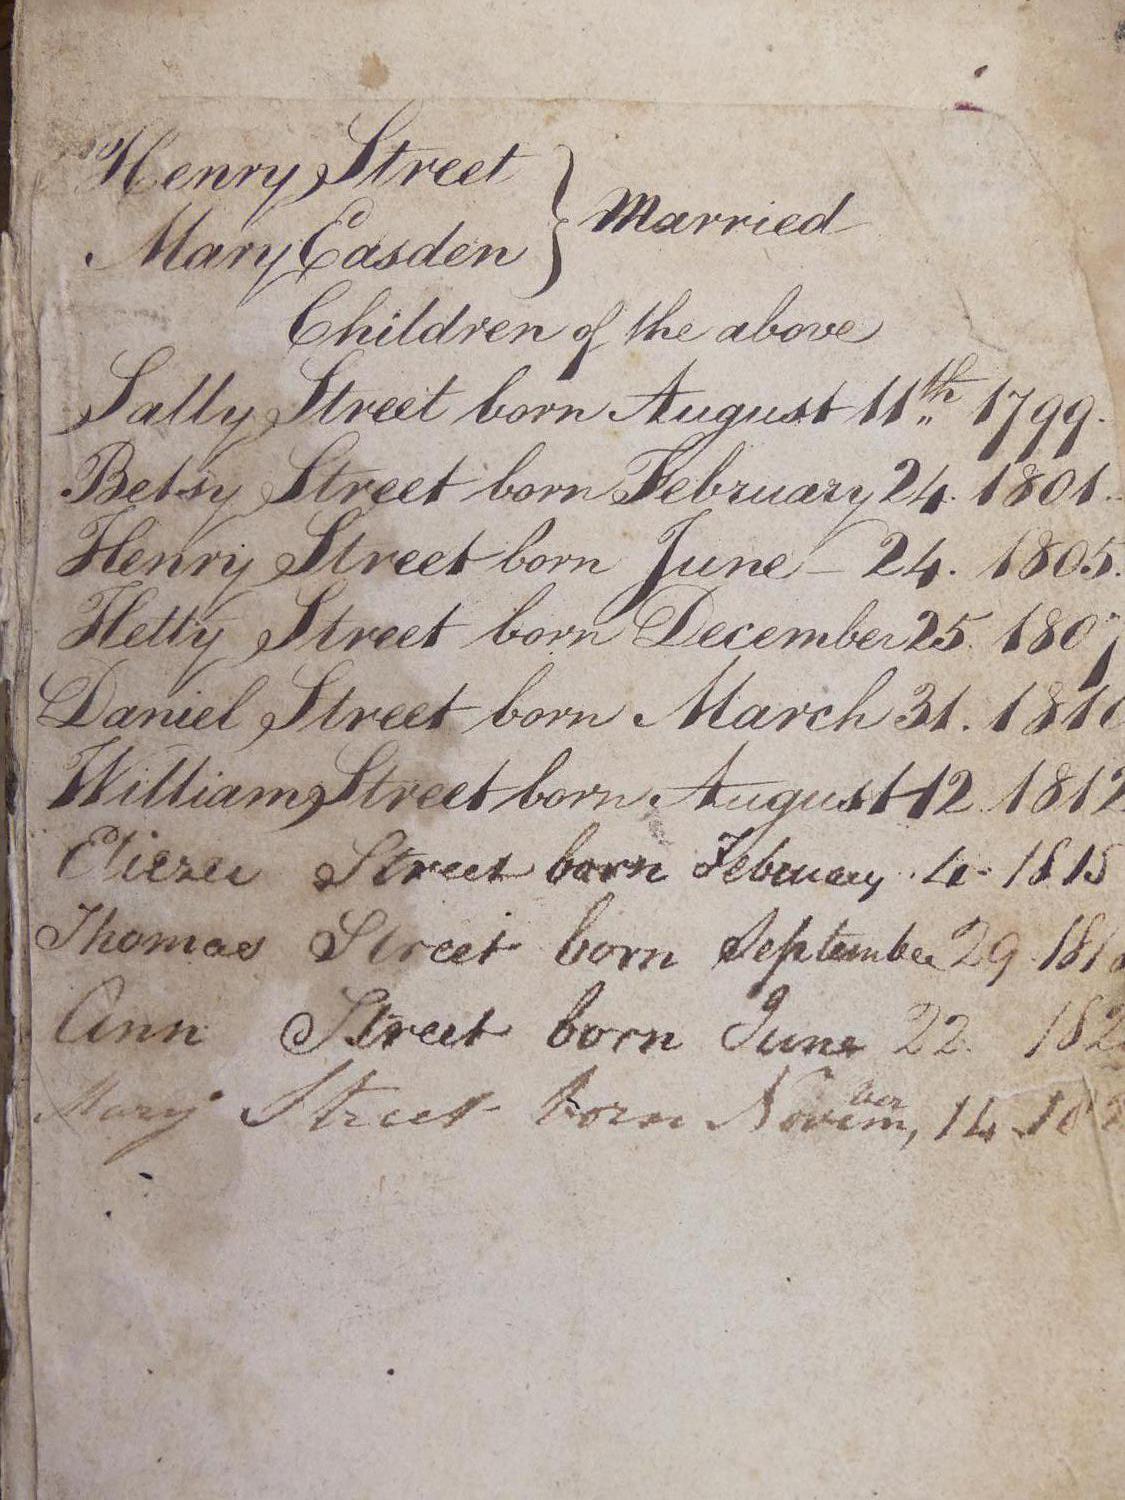 Henry Street
Mary Easden } Married
Children of the above
Sally Street born August 11th 1799.
Betsy Street born February 24. 1801.
Henry Street born June – 24. 1805.
Hetty Street born December 25. 1807
Daniel Street born March 31. 1810
William Street born August 12 1812
Eliezer Street born February 4 1815
Thomas Street born September 29
Ann Street born June 22.
Mary Street born November, 14